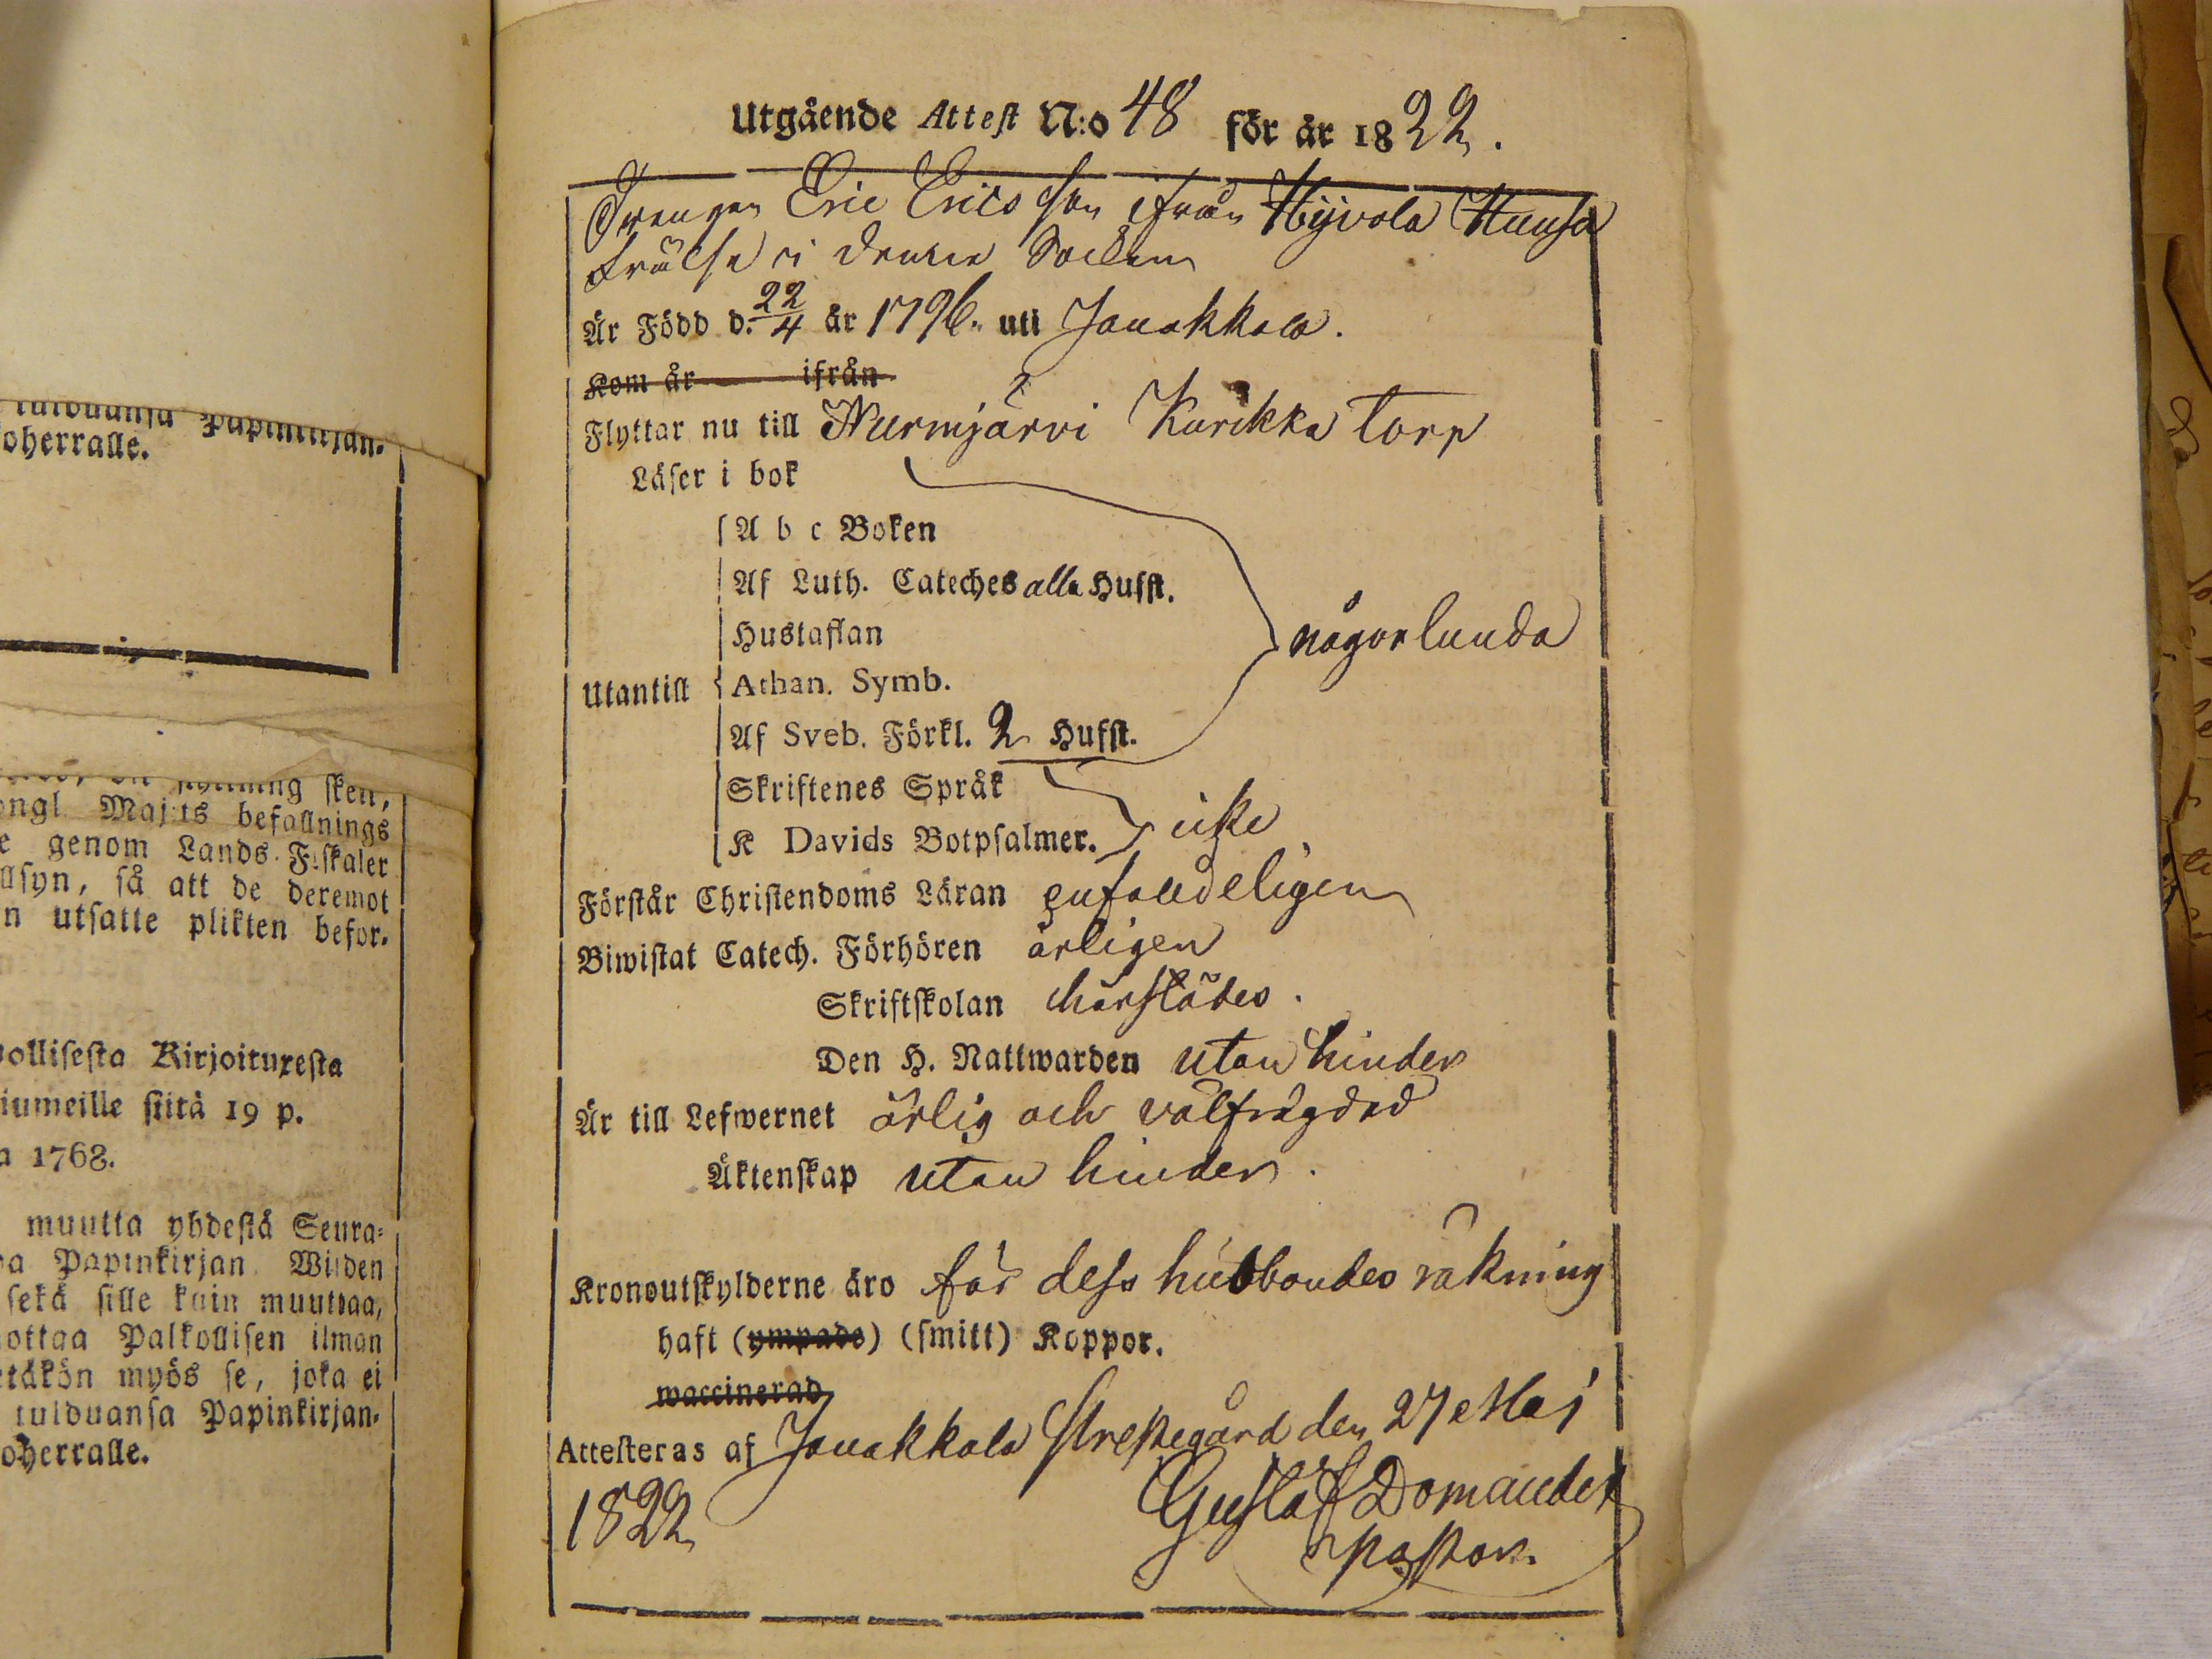 tulduansa Papinkirjan-
oherralle.
flyttning sken,
ongl Maj:ts befallnings
e genom Lands-Fiskaler
llsyn, så att de deremot
n utsatte plikten befor-
ollisesta Kirjoituxesta
iumeille siitä 19 p.
a 1763.
muutta yhdestä Seura-
a Papinkirjan Wiiden
sekä sille kuin muuttaa,
ottaa Palkollisen ilman
täkön myös se, joka ei
tulduansa Papinkirjan-
oherralle.
Utgående Attest N:o 48 för år 1822.
Drengen Eric Ericsson ifrån Hyvola Hunsa
frälse i denna Socken
Är Född d. 22/4 år 1796. uti Janakkala.
Kom år ifrån
Flyttar nu till Nurmjärvi Kurikka torp
Läser i bok
A b c Boken
Af Luth. Cateches alla Hufst.
Hustaflan
någorlunda
Utantill Athan. Symb.
Af Sveb. Förkl. 2 Hufst.
Skriftenes Språk
K Davids Botpsalmer. icke
Förstår Christendoms Läran enfaldeligen
Biwistat Catech. Förhören årligen
Skriftskolan härstädes.
Den H. Nattwarden utan hinder
Är till Lefwernet ärlig och välfrägdad
Äktenskap utan hinder.
Kronoutskylderne äro för dess husbondes räkning
haft (ympade) (smitt) Koppor.
waccinerad
Attesteras af Janakkala Prestegård den 27 Maj
1822 Gustaf Domander
Pastor.